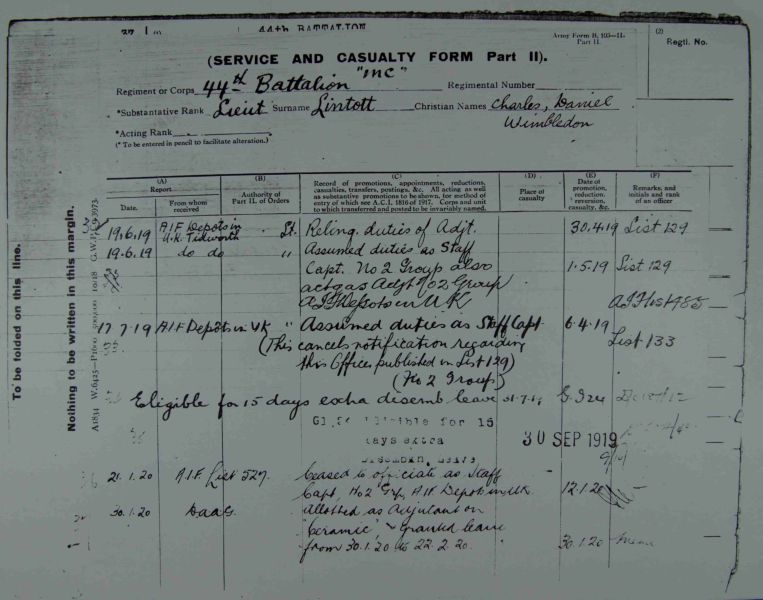 44th BATTALION
Army Form B. 103—II.
Part II.
(2)
Regtl. No.
(SERVICE AND CASUALTY FORM Part II).
"INC"
Regiment or Corps 44th Battalion Regimental Number
*Substantive Rank Lieut Surname Lintott Christian Names Charles, Daniel
Wimbledon
*Acting Rank
(* To be entered in pencil to facilitate alteration.)
(A)
Report
Date.
From whom received
(B)
Authority of Part II. of Orders
(C)
Record of promotions, appointments, reductions,
casualties, transfers, postings, &c. All acting as well
as substantive promotions to be shown, for method of
entry of which see A.C.I. 1816 of 1917. Corps and unit
to which transferred and posted to be invariably named.
(D)
Place of casualty
(E)
Date of promotion, reduction, reversion, casualty, &c.
(F)
Remarks, and initials and rank of an officer
19.6.19 A.I.F. Depots in U.K. Tidworth Lt. Relinq. duties of Adjt. 30.4.19 List 129
19.6.19 do do " Assumed duties as Staff
Capt. No 2 Group also 1.5.19 List 129
actg as Adjt No 2 Group
AIF Depots in UK
17.7.19 AIF Depots in UK " Assumed duties as Staff Capt 6.4.19
(This cancels notification regarding List 133
this Officer published in List 129)
(No 2 Group)
Eligible for 15 days extra disemb leave
Eligible for 15
days extra
30 SEP 1919
21.1.20 A.I.F. List 527. Ceased to officiate as Staff
Capt, No 2 Gp, AIF Depots in UK. 12.1.20
30.1.20 DAAG. Allotted as Adjutant on
"Ceramic", Granted leave
from 30.1.20 to 22.2.20. 30.1.20
To be folded on this line.
Nothing to be written in this margin.